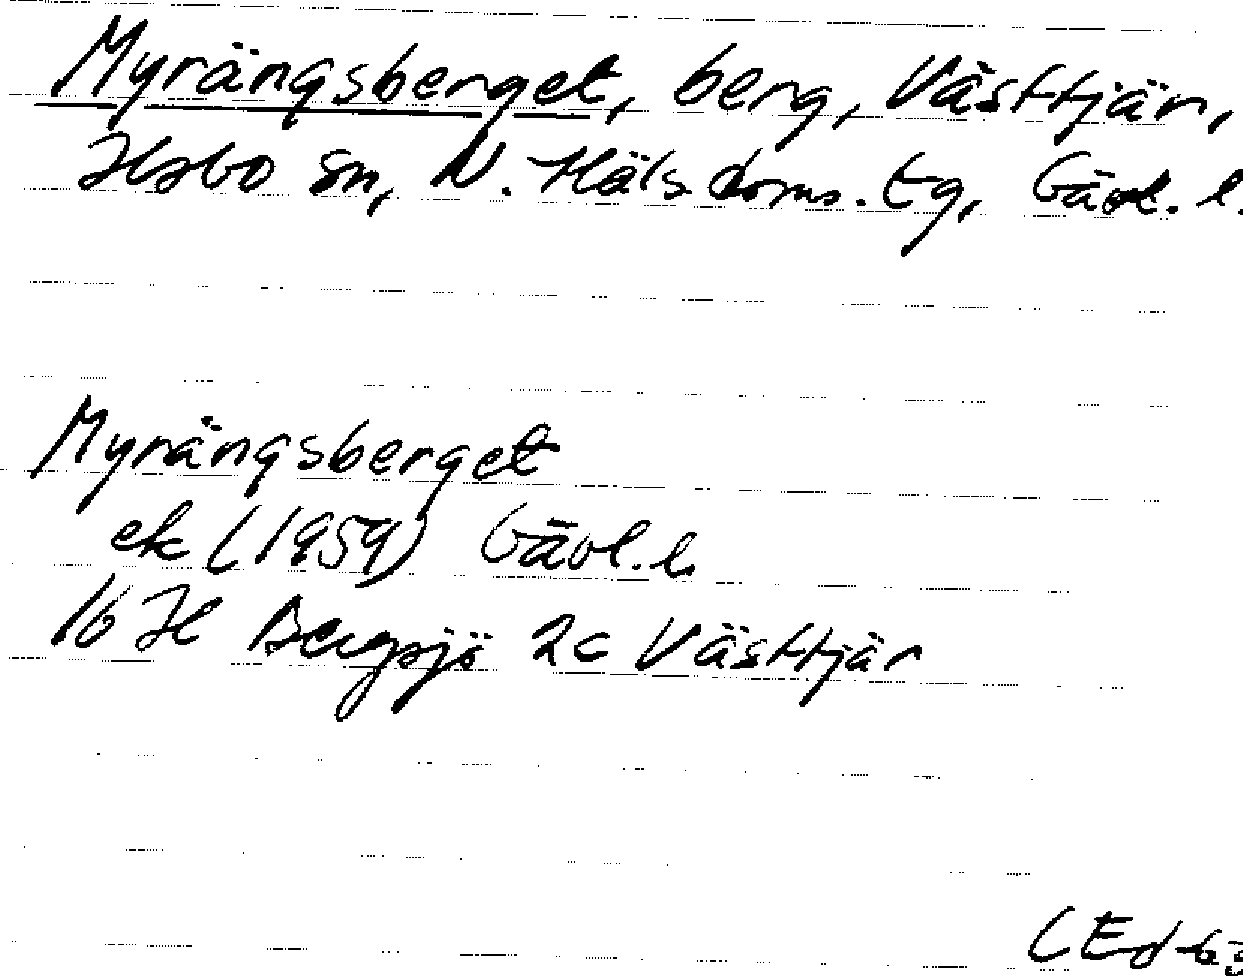 Myrängsberget, berg, Västtjär,
Ilsbo sn, N. Häls. doms. tg, Gävl. l.
Myrängsberget
ek (1959) Gävl. l.
16 H Bergsjö 2c Västtjär